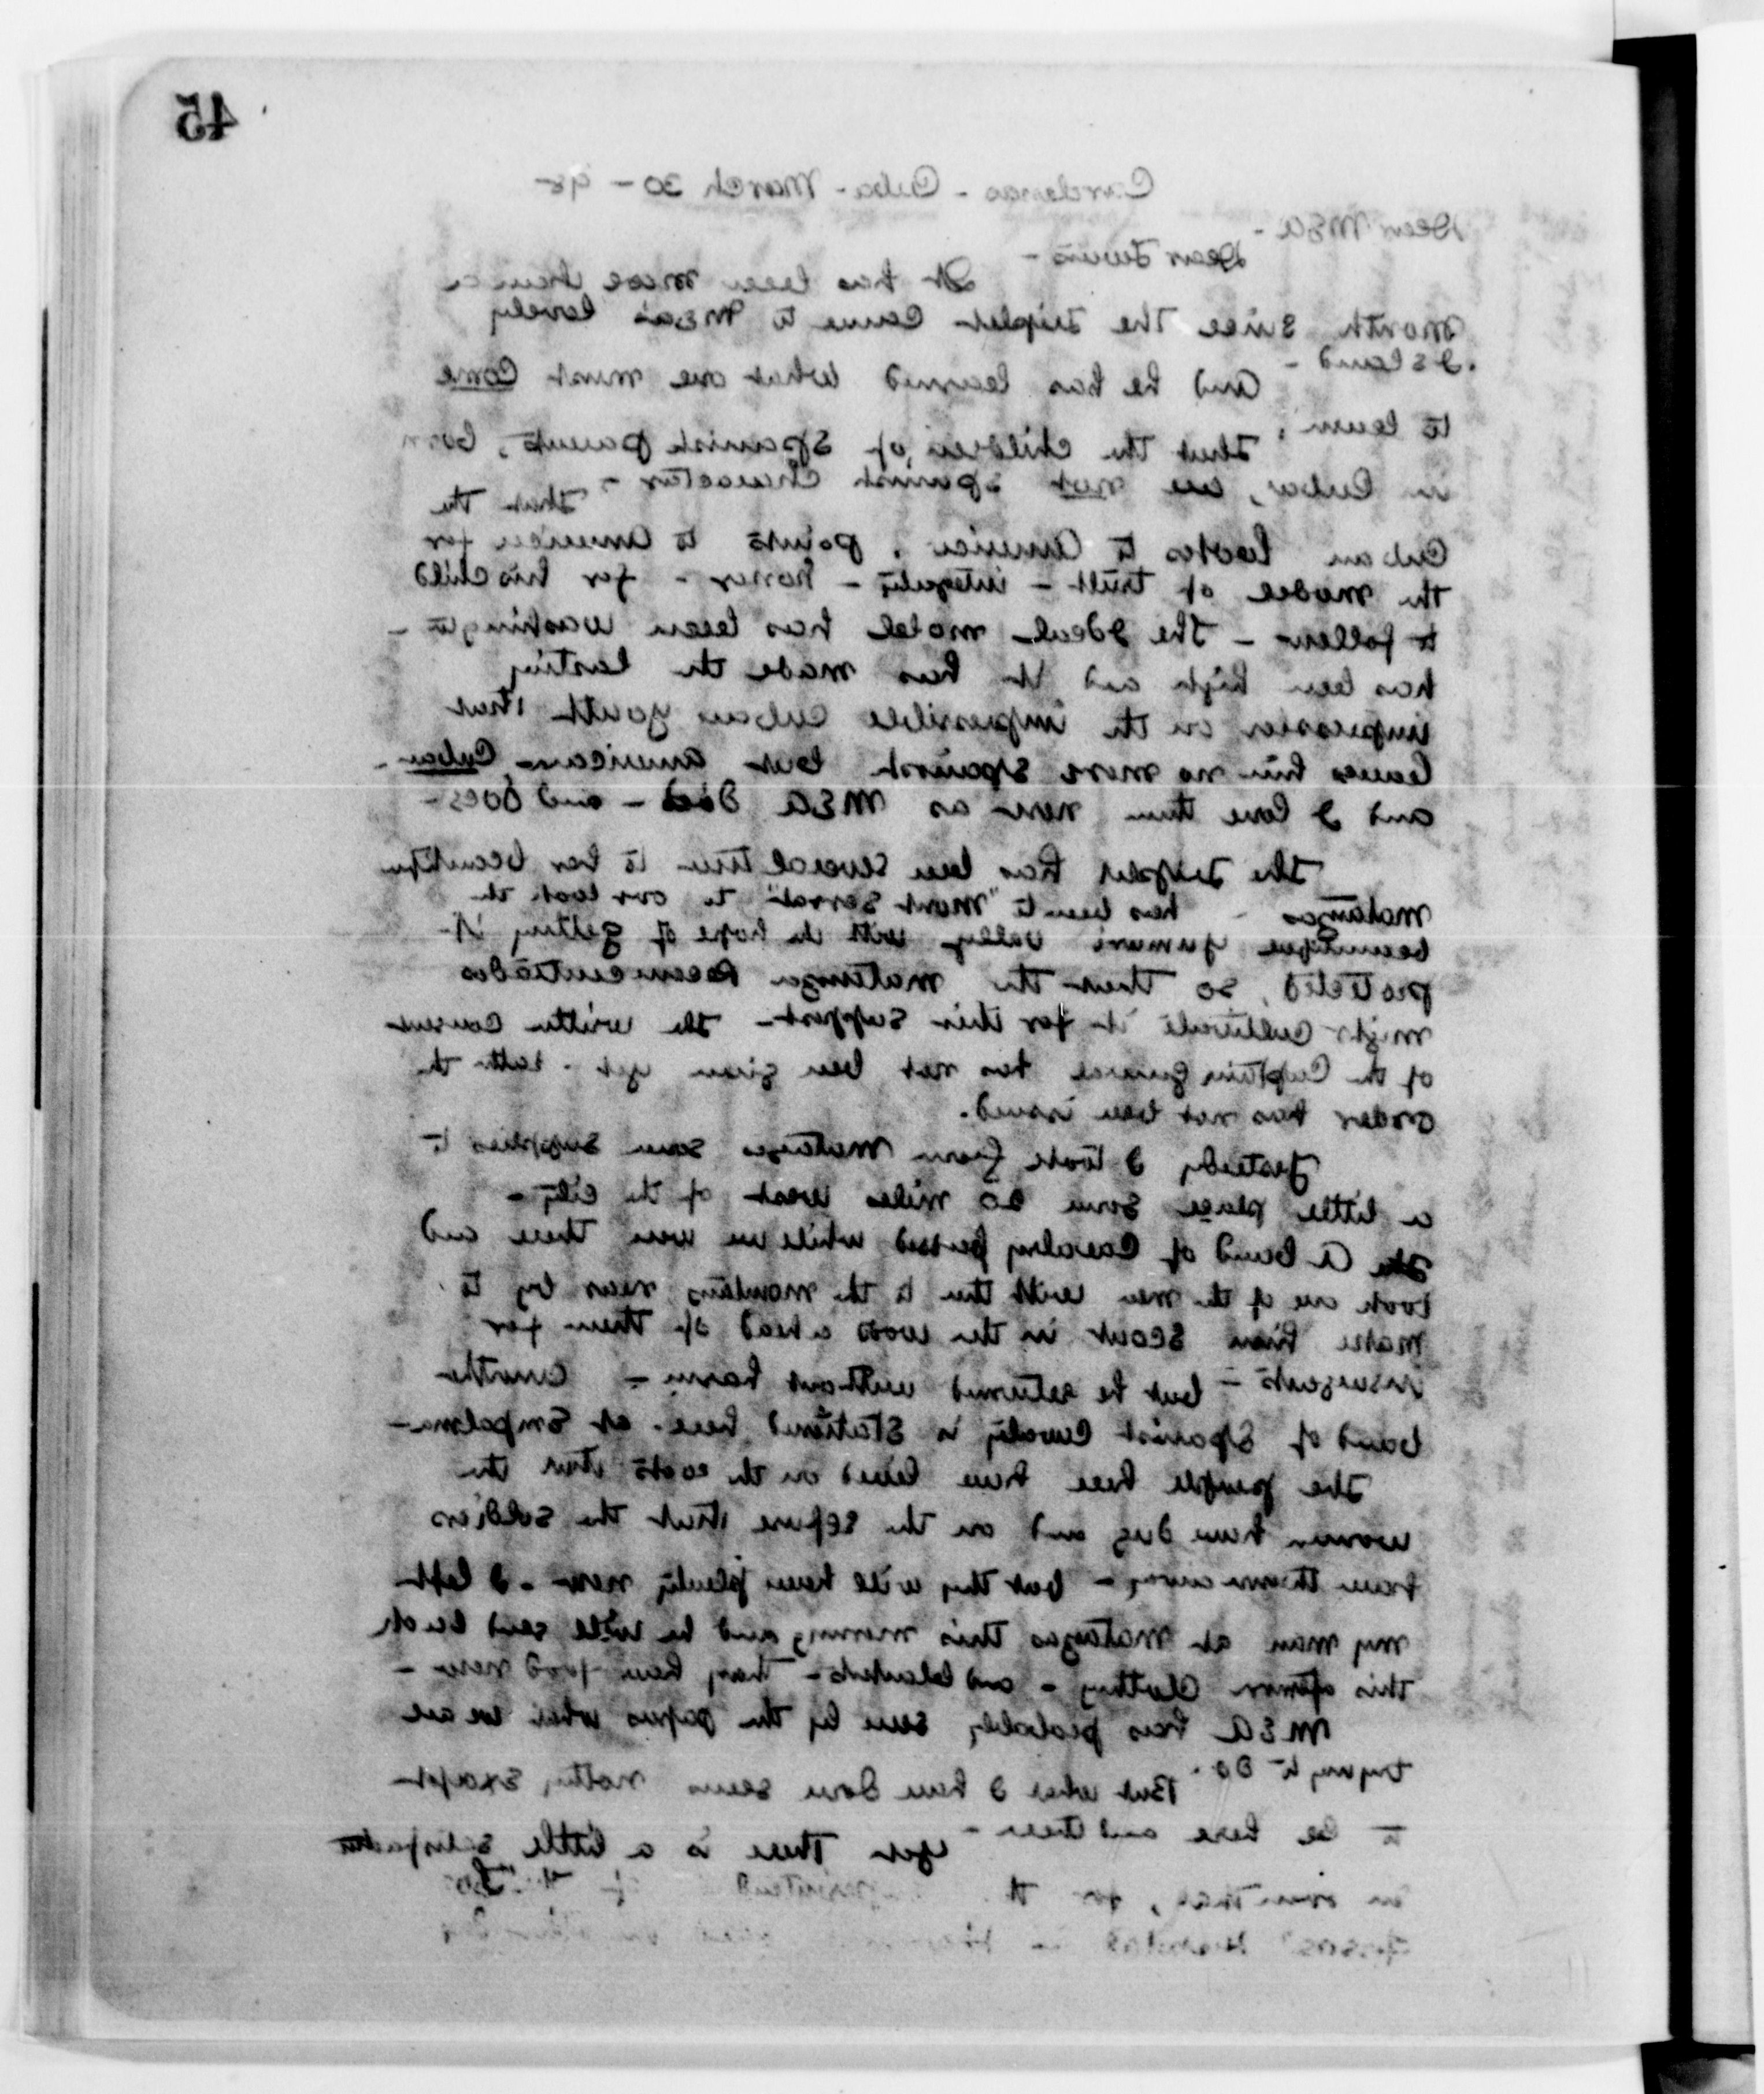 45
Cardenas - Cuba - March 30 - 98
Dear MEA -
Dear Twins -
It has been more than a
month since the Triplet came to MEA's lovely
Island -
And he has learned what one must come
to learn;
That the children, of Spanish parents, born
in Cuba, are not Spanish character - That the
Cuban looks to America, points to America for
the model of truth - integrity - honor - for his child
to follow - The Ideal model has been Washington -
has been high and it has made the lasting
impression on the impressible Cuban youth that
leaves him no more Spanish but American Cuban -
and I love them now as MEA did - and does -
The Triplet has been several times to her beautiful
Matanzas - has been to "Mont Serrat" to over look the
beautiful Yumuri valley with the hope of getting it
protected, so that the Matanzas Reconcentrados
might cultivate it for their support - The written consent
of the Captain General has not been given yet - the
order has not been issued.
Yesterday I took from Matanzas some supplies to
a little place some 20 miles west of the city -
A band of Cavalry passed while we were there and
took one of the men with them to the mountains near by to
make him scout in the wood ahead of them for
insurgents - but he returned without harm - another
band of Spanish Cavalry is stationed here. at Empalme -
The people here have lived on the roots that the
women have dug and on the refuse that the soldiers
have thrown away - but they will have plenty now - I left
my man at Matanzas this morning and he will send back
this afternoon Clothing - and blankets - They have food now -
MEA has probably seen by the papers what we are
trying to do. But what I have done seems nothing except
to be here and there - yet there is a little satisfaction
in even that, for the of the "Dos